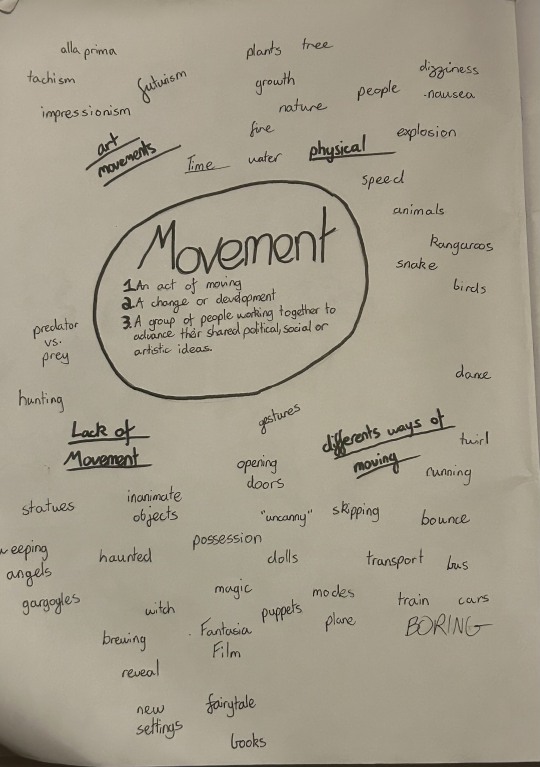 alla prima
plants tree
tachism
futurism
growth
people
dizziness
nausea
impressionism
nature
fire
art
movements
Time
water
physical
explosion
speed
animals
Movement
1. An act of moving
2. A change or development
3. A group of people working together to
advance their shared political, social or
artistic ideas.
kangaroos
snake
birds
predator
vs.
prey
dance
hunting
gestures
Lack of
Movement
differents ways of
moving
twirl
opening
doors
running
statues
inanimate
objects
"uncanny"
skipping
bounce
weeping
angels
haunted
possession
dolls
transport
bus
gargoyles
magic
modes
train
cars
witch
puppets
plane
BORING
brewing
Fantasia
Film
reveal
new
settings
fairytale
books